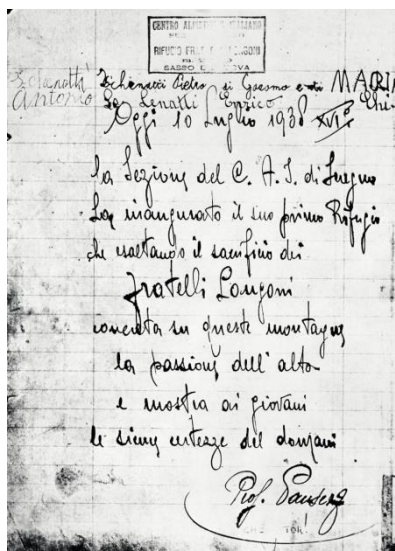 CENTRO ALPINISTICO ITALIANO
RIFUGIO FRATELLI LONGONI
SASSO
Schenatti Schenatti Pietro di Giacomo MARIA
Antonio Lenatti Enrico
Oggi 10 Luglio 1938 XVI°
la Sezione del C. A. I. di Seregno
ha inaugurato il suo primo Rifugio
che esaltando il sacrificio dei
fratelli Longoni
cementa su queste montagne
la passione dell'alto
e mostra ai giovani
le sicure certezze del domani
Prof.